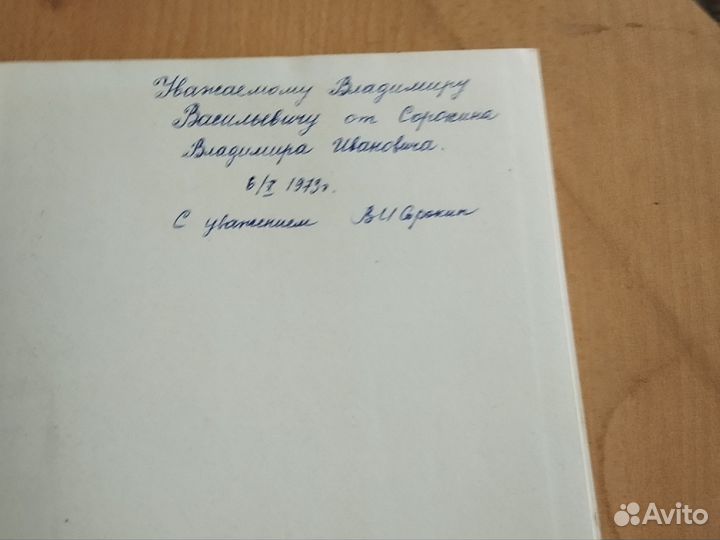 Уважаемому Владимиру
Васильевичу от Сорокина
Владимира Ивановича.
6/X 1973г.
С уважением ВИ Сорокин
Avito